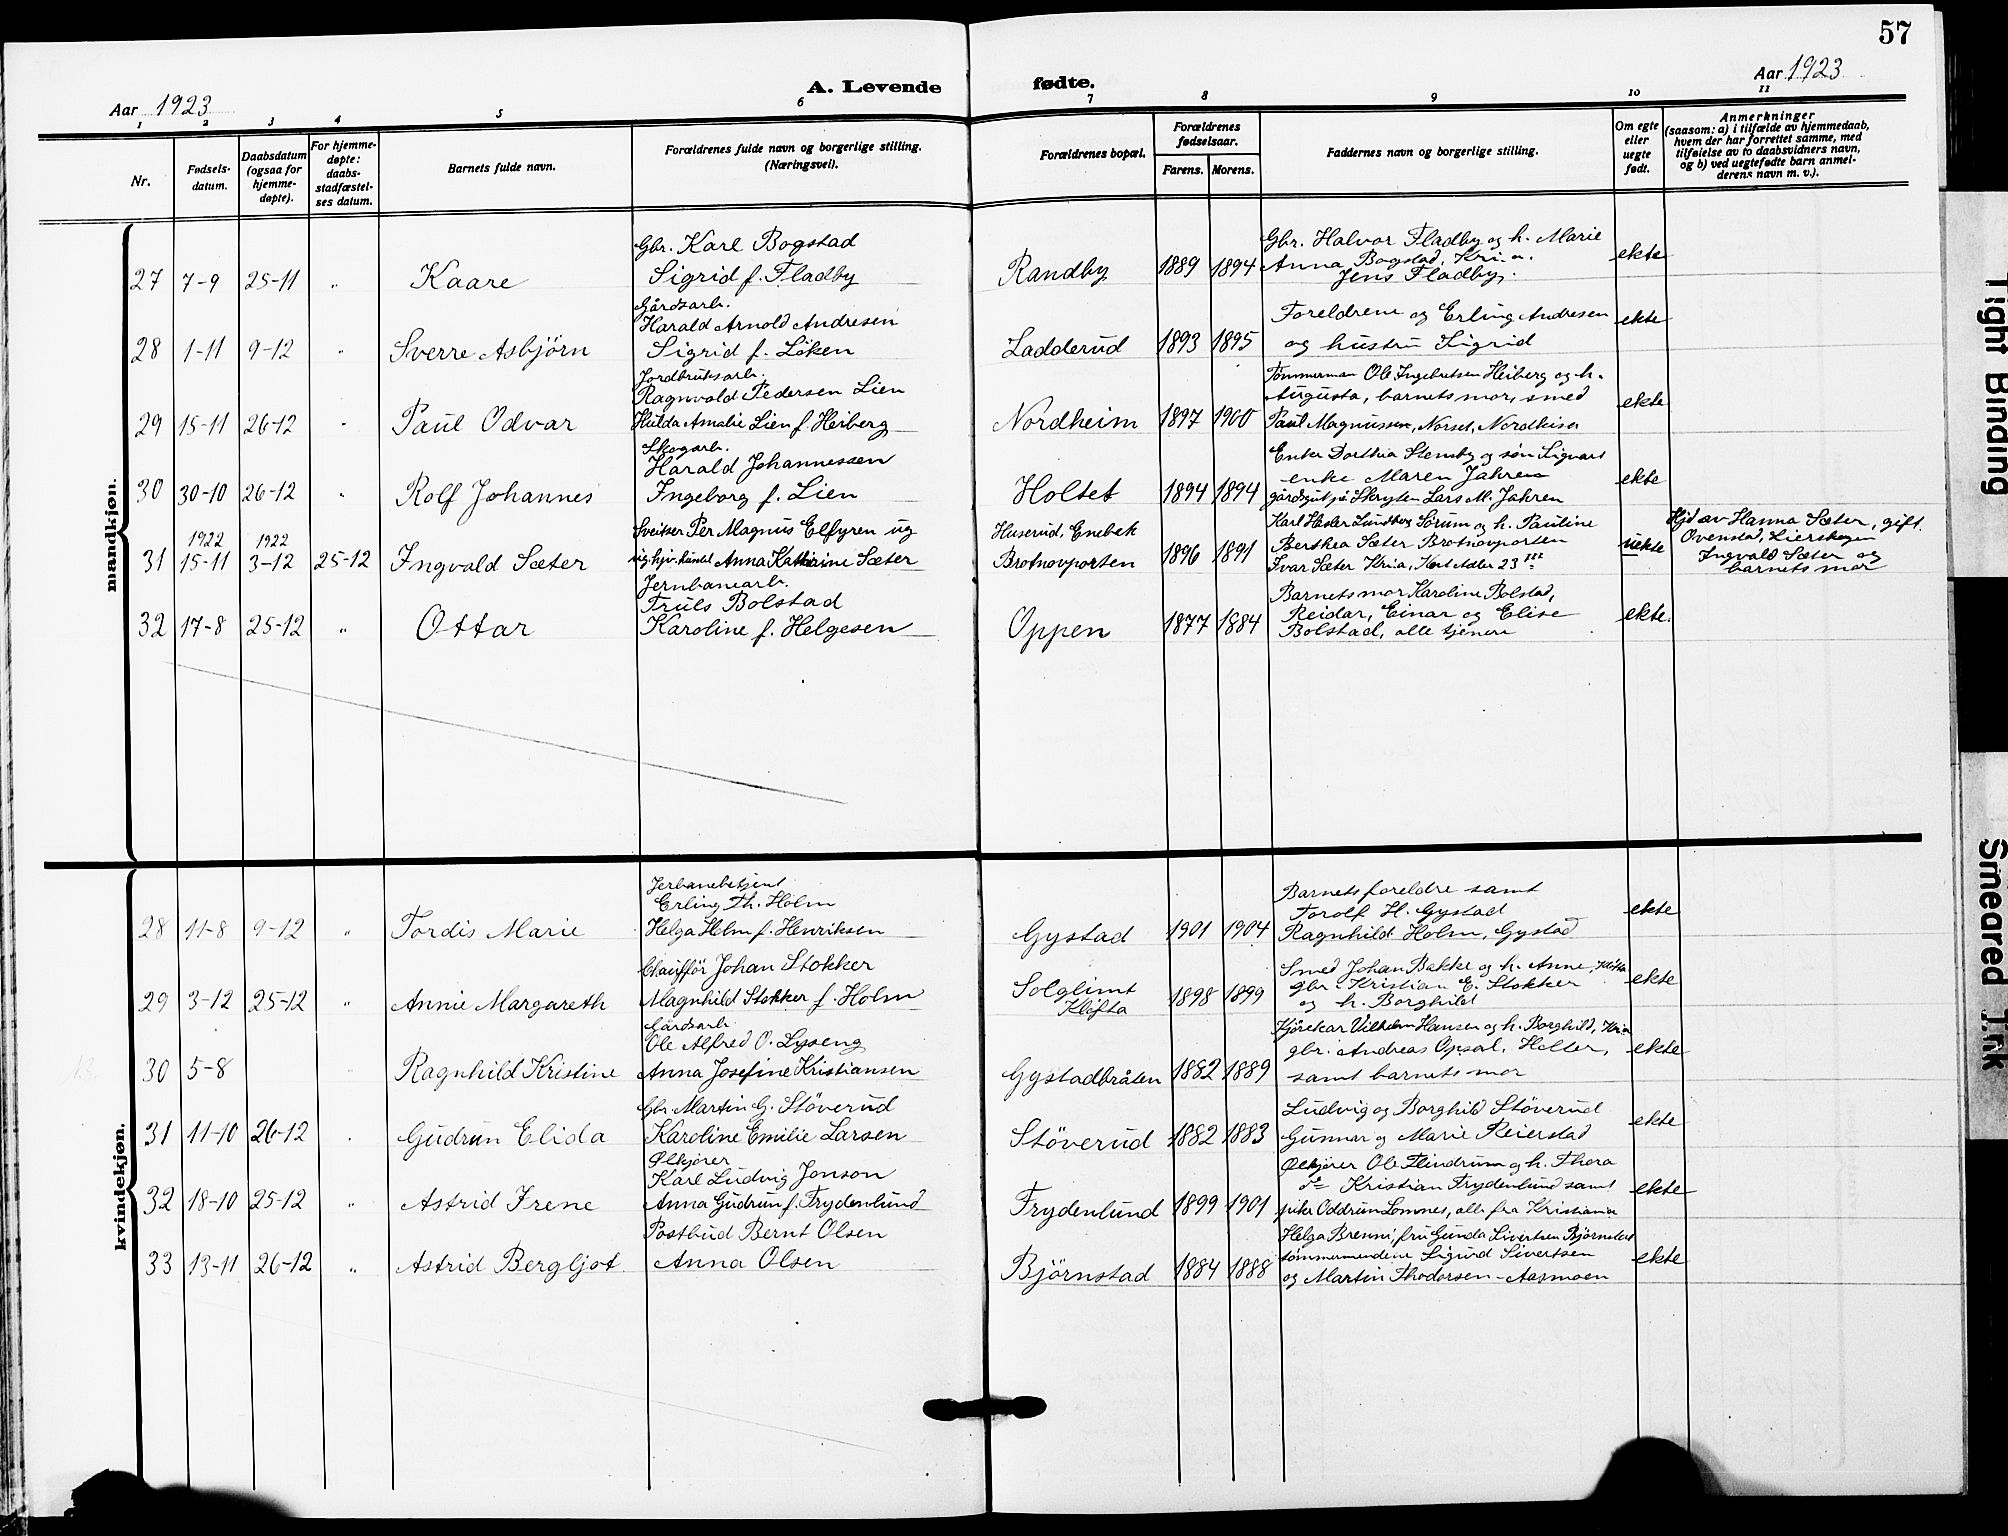 57
Aar 1923
A. Levende fødte.
Aar 1923
1 2 3 4 5 6 7 8 9 10 11
Nr.
Fødsels-
datum.
Daabsdatum
(ogsaa for
hjemme-
døpte).
For hjemme-
døpte:
daabs-
stadfæstel-
ses datum.
Barnets fulde navn.
Forældrenes fulde navn og borgerlige stilling.
(Næringsvei).
Forældrenes bopæl.
Forældrenes
fødselsaar.
Farens. Morens.
Faddernes navn og borgerlige stilling.
Om egte
eller
uegte
født.
Anmerkninger
(saasom: a) i tilfælde av hjemmedaab,
hvem der har forrettet samme, med
tilføielse av to daabsvidners navn,
og b) ved uegtefødte barn anmel-
derens navn m. v.).
mandkjøn.
27 7-9 25-11 " Kaare
Gbr. Karl Bogstad
Sigrid f. Fladby
Randby 1889 1894
Gbr. Halvor Fladby og h. Marie
Anna Bogstad, Kri.a.
Jens Fladby.
ekte
28 1-11 9-12 " Sverre Asbjörn
Gårdsarb.
Harald Arnold Andresen
Sigrid f. Löken
Ladderud 1893 1895
Foreldrene og Erling Andresen
og hustru Sigrid
ekte
29 15-11 26-12 " Paul Odvar
Jordbruksarb.
Ragnvald Pedersen Lien
Hilda Amalie Lien f. Heiberg
Nordheim 1897 1900
Tömmerman Ole Ingebretsen Heiberg og h.
Augusta, barnets mor, smed
Paul Magnussen, Norset, Nordkisa
ekte
30 30-10 26-12 " Rolf Johannes
Skogarb.
Harald Johannessen
Ingeborg f. Lien
Holtet 1894 1894
Enke Dorthea Stensby og sön Sigvart
enke Maren Jahren
gårdsgut på Skryten Lars M. Jahren
ekte
31 1922 15-11 1922 3-12 25-12 Ingvald Sæter
Sveitser Per Magnus Elfgren ug
Anna Kathrine Sæter
Huserud, Enebak
Brotnovporten 1896 1891
Karl Hesler Lundberg Sörum og h. Pauline
Berthea Sæter Brotnovporten
Ivar Sæter Kria, Kort Adler 23 III
uekte
Hjd av Hanna Sæter, gift.
Ovenstad, Lierskogen
Ingvald Sæter og
barnets mor
32 17-8 25-12 " Ottar
Jernbanearb.
Truls Bolstad
Karoline f. Helgesen
Oppen 1877 1884
Barnets mor Karoline Bolstad,
Reidar, Einar og Elise
Bolstad, alle tjenere
ekte.
kvindekjøn.
28 11-8 9-12 " Tordis Marie
Jerbanebetjent
Erling Th. Holm
Helga Holm f. Henriksen
Gystad 1901 1904
Barnets foreldre samt
Torolf H. Gystad
Ragnhild Holm, Gystad
ekte
29 3-12 25-12 " Annie Margareth
Chaufför Johan Stokker
Magnhild Stokker f. Holm
Solglimt
Klöfta
1898 1899
Smed Johan Bakke og h. Anne, Klöfta
gbr. Kristian E. Stokker
og h. Borghild
ekte
30 5-8 Ragnhild Kristine
Gårdsarb
Ole Alfred O. Lyseng
Anna Josefine Kristiansen
Gystadbråten 1882 1889
Kjörekar Vilhelm Hansen og h. Borghild, Kria
gbr. Andreas Opsal, Holter,
samt barnets mor
ekte
31 11-10 26-12 " Gudrun Elida
Gbr. Martin G. Stöverud
Karoline Emilie Larsen
Stöverud 1882 1883
Ludvig og Borghild Stöverud
Gunnar og Marie Reierstad
ekte
32 18-10 25-12 " Astrid Irene
Ølkjörer
Karl Ludvig Jonson
Anna Gudrun f. Frydenlund
Frydenlund 1899 1901
Ølkjörer Ole Flindrum og h. Thora
do Kristian Frydenlund samt
pike Oddrun Lomnes, alle fra Kristiania
ekte
33 13-11 26-12 " Astrid Bergljot
Postbud Bernt Olsen
Anna Olsen
Björnstad 1884 1888
Helga Brenni, fru Gunda Sivertsen Björnstad
tömmermendene Sigurd Sivertsen
og Martin Thodorsen - Aasmoen
ekte
Tight Binding
Smeared Ink